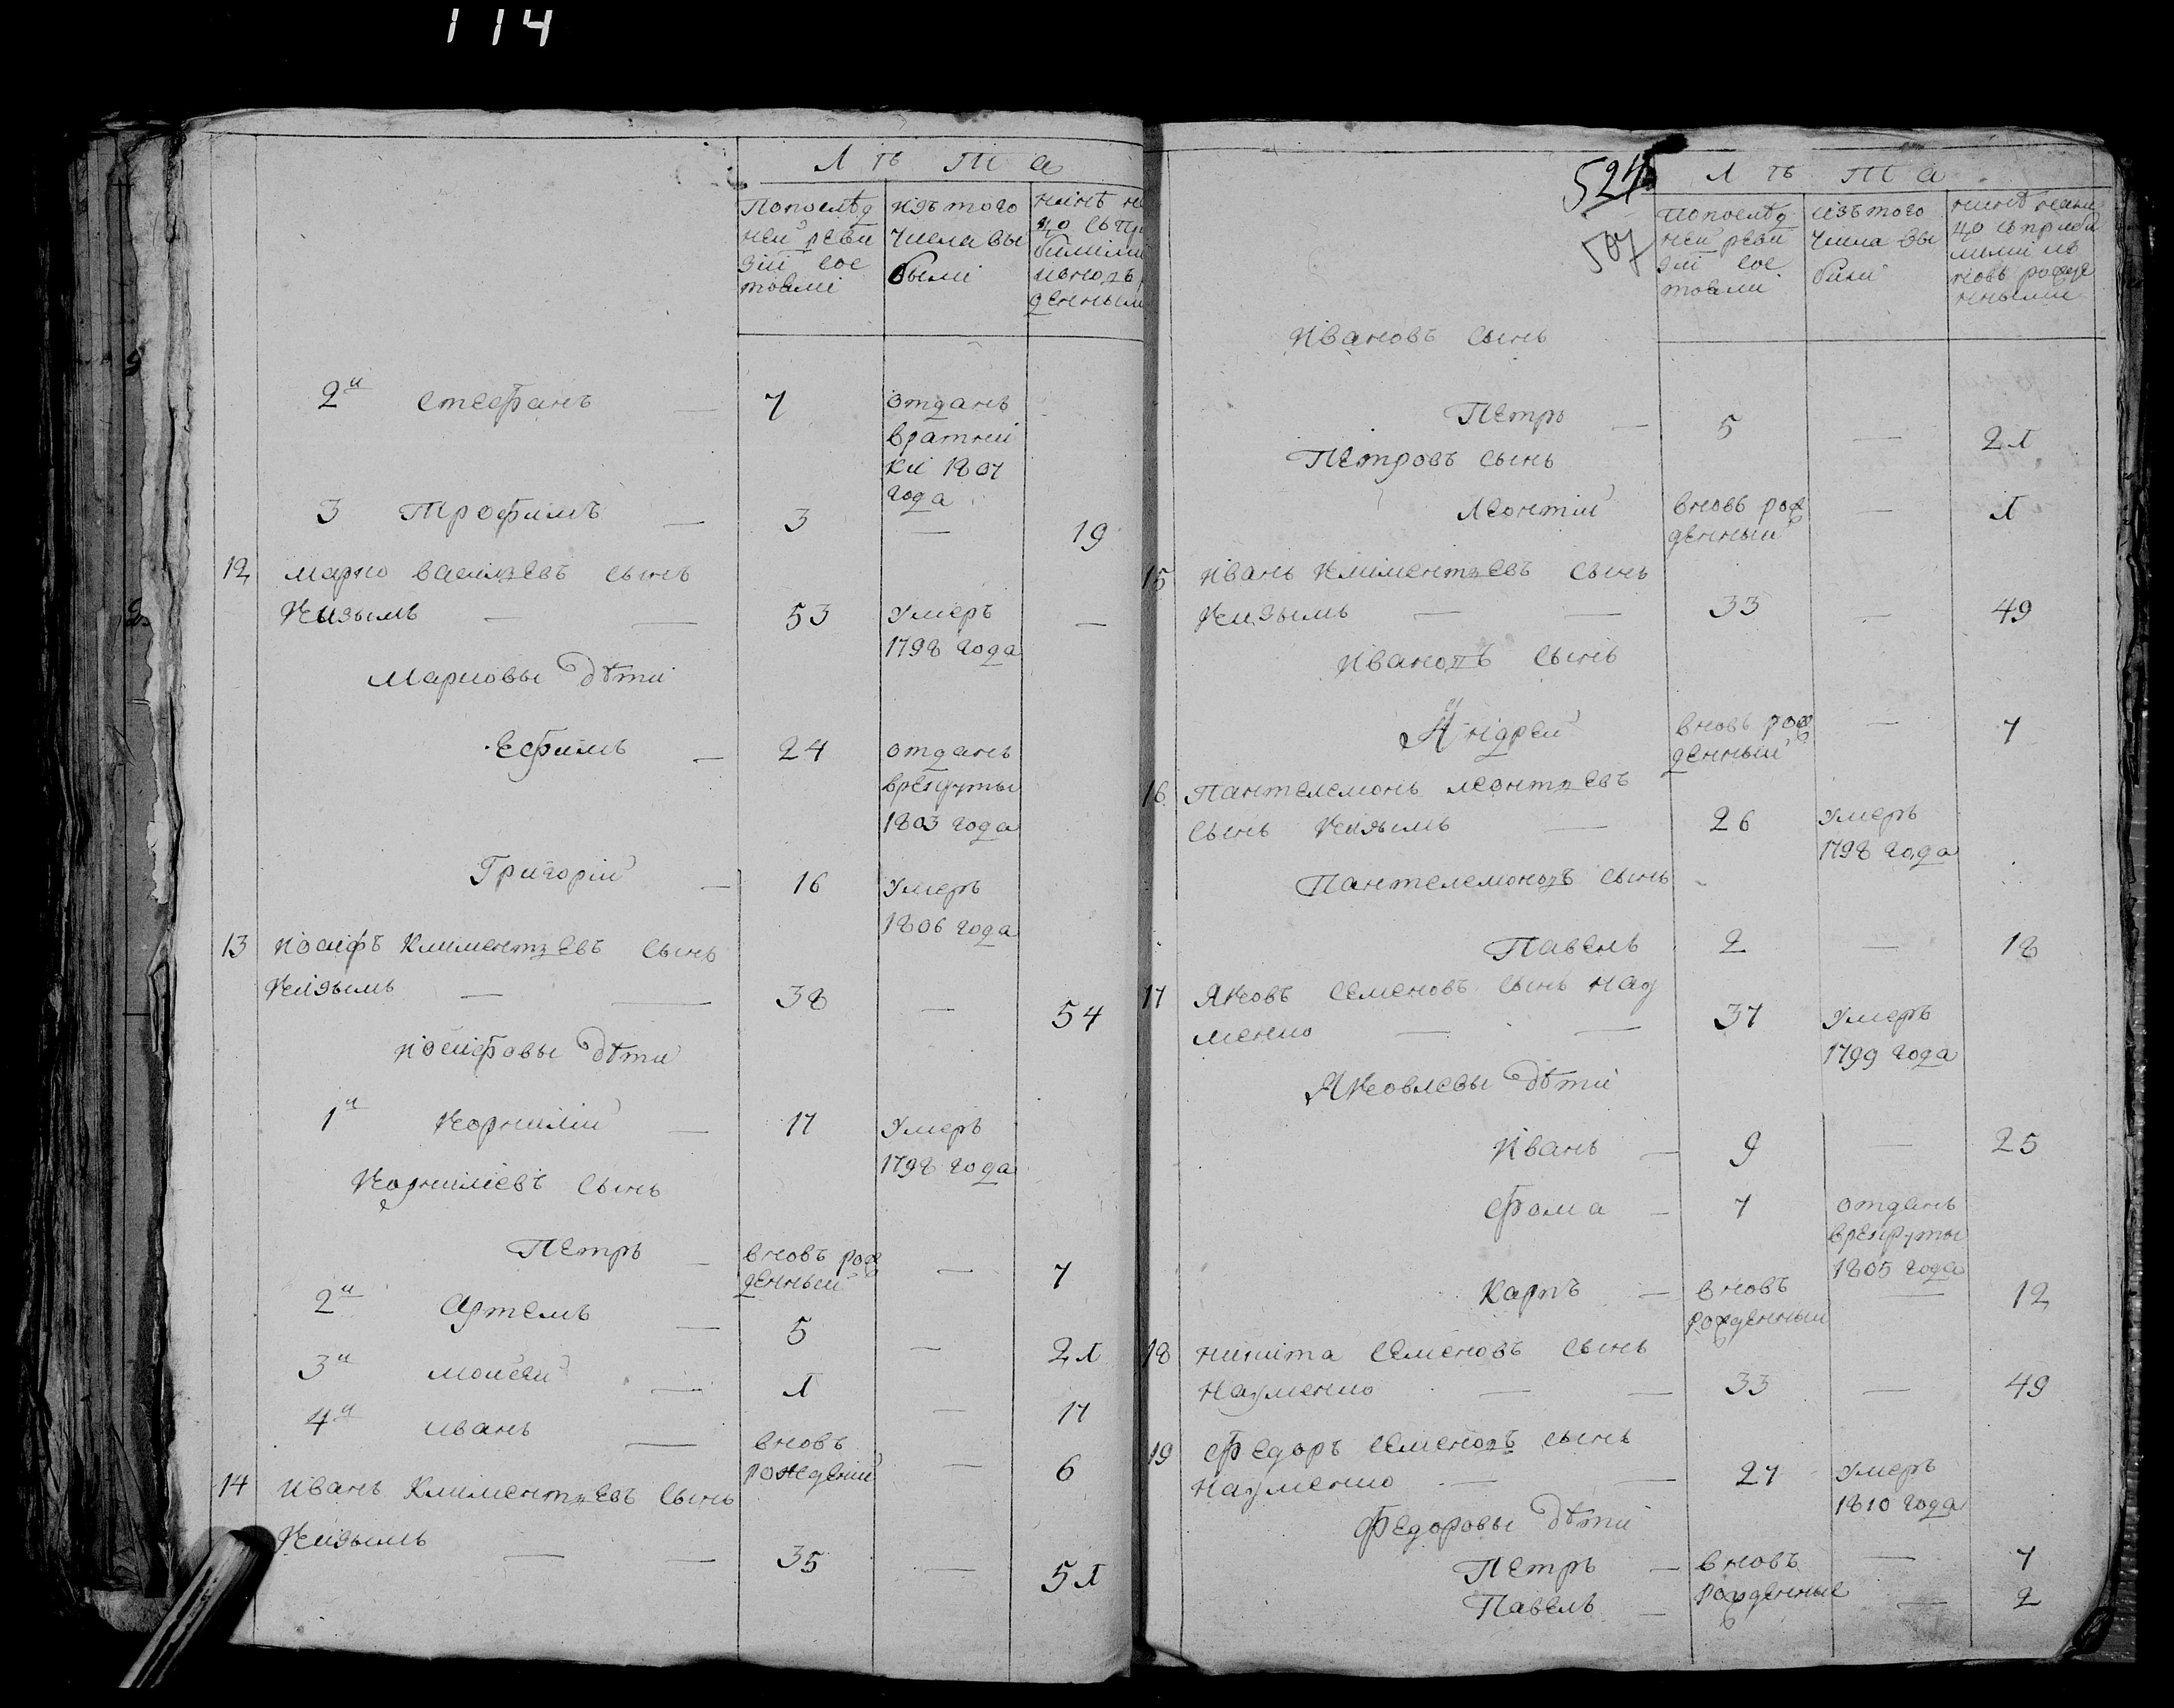 114
Лѣта
Попослѣд
ней реви
зіи сос
тояли
изъ того
числа вы
были
нинѣ на
ли
цо съ при
былими
денным
2й Стефанъ — 7 отданъ
вратни
ки 1807
года
3 Трофимъ — 3 — 19
12 Марко Васильевъ сынъ
Кизымъ — — 53 умеръ —
1798 года
Марковы дѣти
Ефимъ — 24 отданъ
врекруты
1803 года
Григорій — 16 умеръ
1806 года
13 Иосифъ Климентьевъ сынъ
Кизымъ — — 38 — 54
Иосифовы дѣти
1й Корнилій — 17 умеръ
1798 года
Корниліевъ сынъ
Петръ — вновь рож
денный — 7
2й Артемъ — 5 — 21
3й Моисей — 1 — 17
4й Иванъ — вновь
рожденій — 6
14 Иванъ Климентьевъ сынъ
Кизымъ — — 35 — 51
524
507
Лѣта
Попослѣд
ней реви
зіи сос
тояли
изъ того
числа вы
были
нинѣ нали
цо съ приби
лими и в
новь рожде
нными
Ивановъ сынъ
Петръ — 5 — 21
Петровъ сынъ
Леонтій вновь рож — 1
денный
15 Иванъ Климентьевъ сынъ
Кизымъ — — 33 — 49
Ивановъ сынъ
Андрей вновь рож — 7
денный
16 Пантелемонъ Леонтьевъ
сынъ Кизымъ — 26 умеръ
1798 года
Пантелемоновъ сынъ
Павелъ 2 — 18
17 Яковъ Семеновъ сынъ Нау
менко — — 37 умеръ
1799 года
Яковлевы дѣти
Иванъ — 9 — 25
Фома — 7 отданъ
врекруты
1805 года
Карпъ — вновь — 12
рожденный
18 Никита Семеновъ сынъ
Науменко — — 33 — 49
19 Федоръ Семеновъ сынъ
Науменко — — 27 умеръ
1810 года
Федоровы дѣти
Петръ — вновь — 7
Павелъ — рожденные — 2